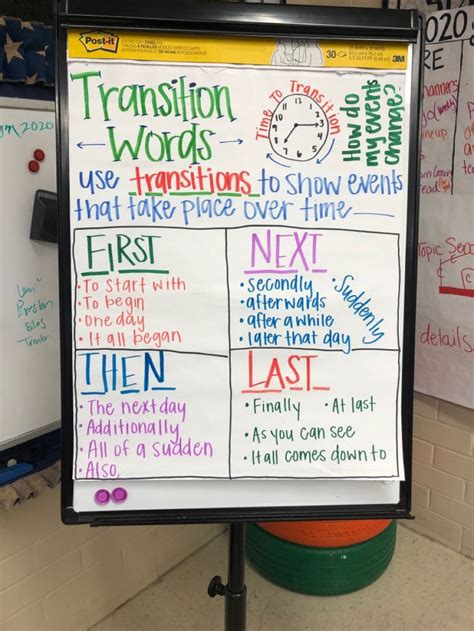 Post-it
30
3M
Transition
Words
Time To Transition
How do
my events
change?
use transitions to show events
that take place over time
FIRST
• To start with
• To begin
• One day
• It all began
NEXT
• Secondly
• afterwards
• after a while
• later that day
Suddenly
THEN
• The next day
• Additionally
• All of a sudden
• Also,
LAST
• Finally
• At last
• As you can see
• It all comes down to
2020
2020
RE
Topic Sen
details